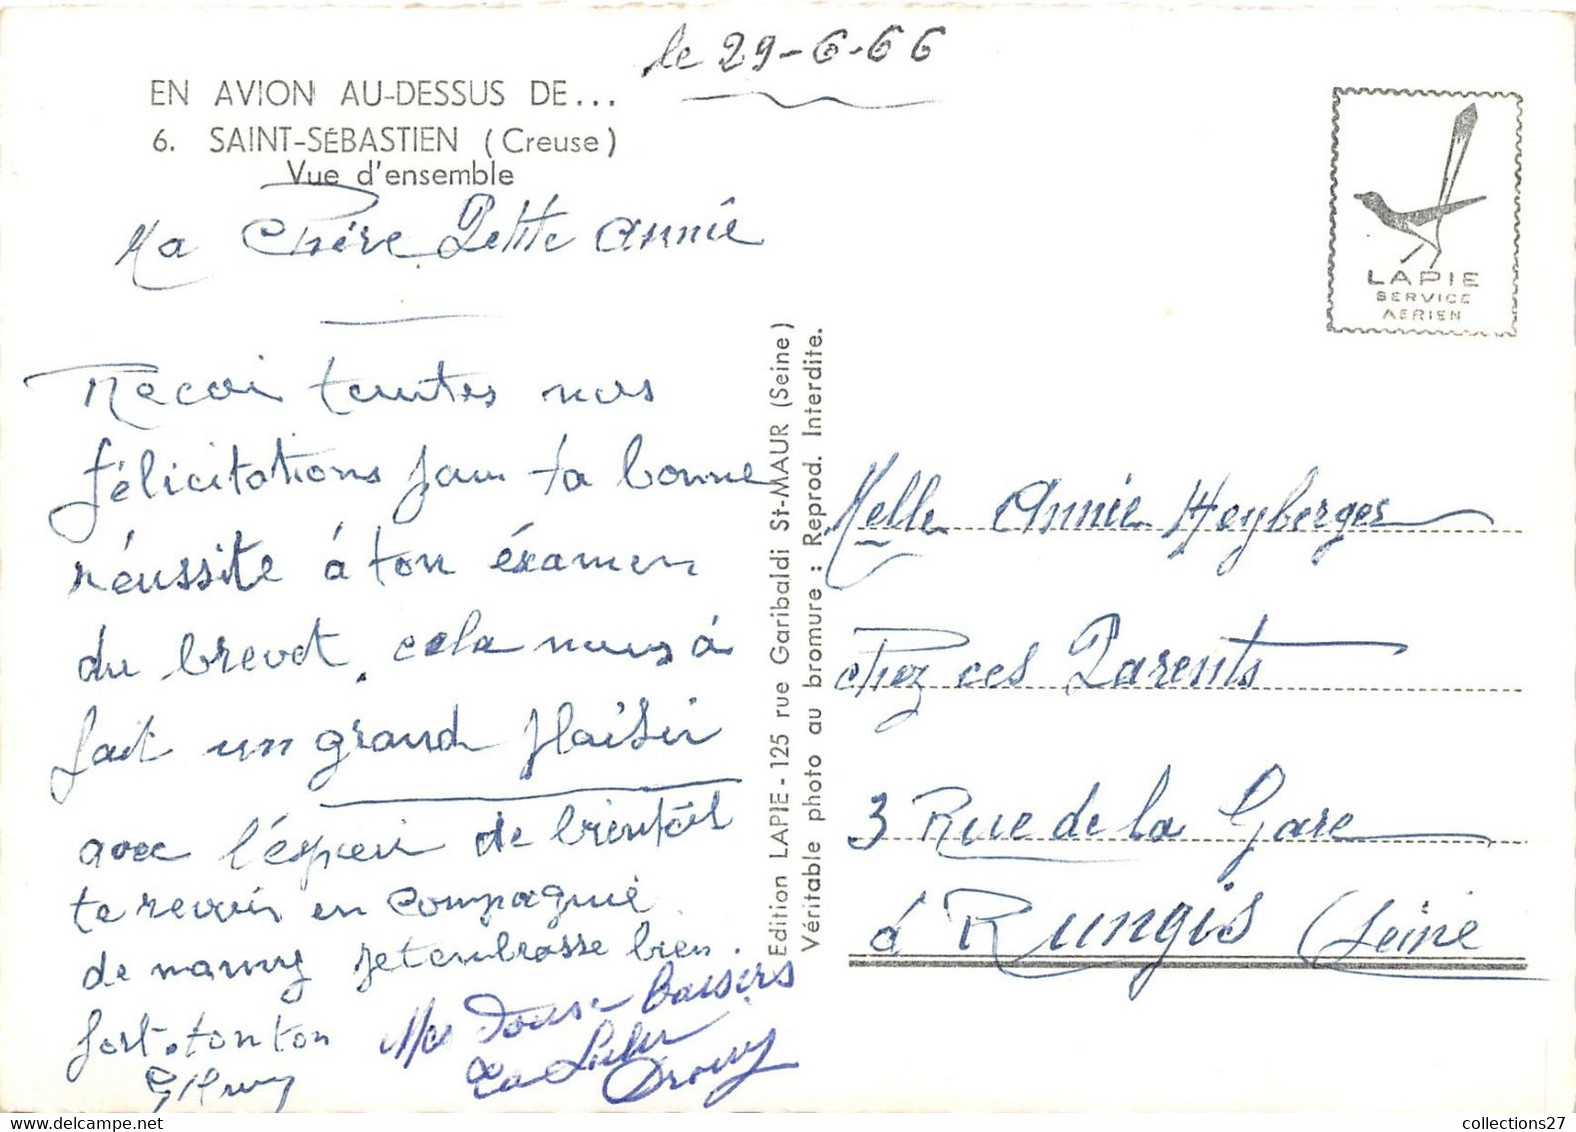 le 29-6-66
EN AVION AU-DESSUS DE...
6. SAINT-SÉBASTIEN (Creuse)
Vue d'ensemble
LAPIE
SERVICE
AERIEN
Ma Chère Petite Annie
Recoi toutes nos
félicitations pour ta bonne
réussite à ton éxamen
du brevet, cela nous à
fait un grand plaisir
avec l'éspoir de bientôt
te revoir en compagnie
de mamy je t'embrasse bien
fort. tonton
Mes Doux baisers
La
Edition LAPIE - 125 rue Garibaldi St-MAUR (Seine)
Véritable photo au bromure : Reprod. Interdite.
Melle Annie Heyberger
chez ces Parents
3 Rue de la Gare
à Rungis (Seine
collections27